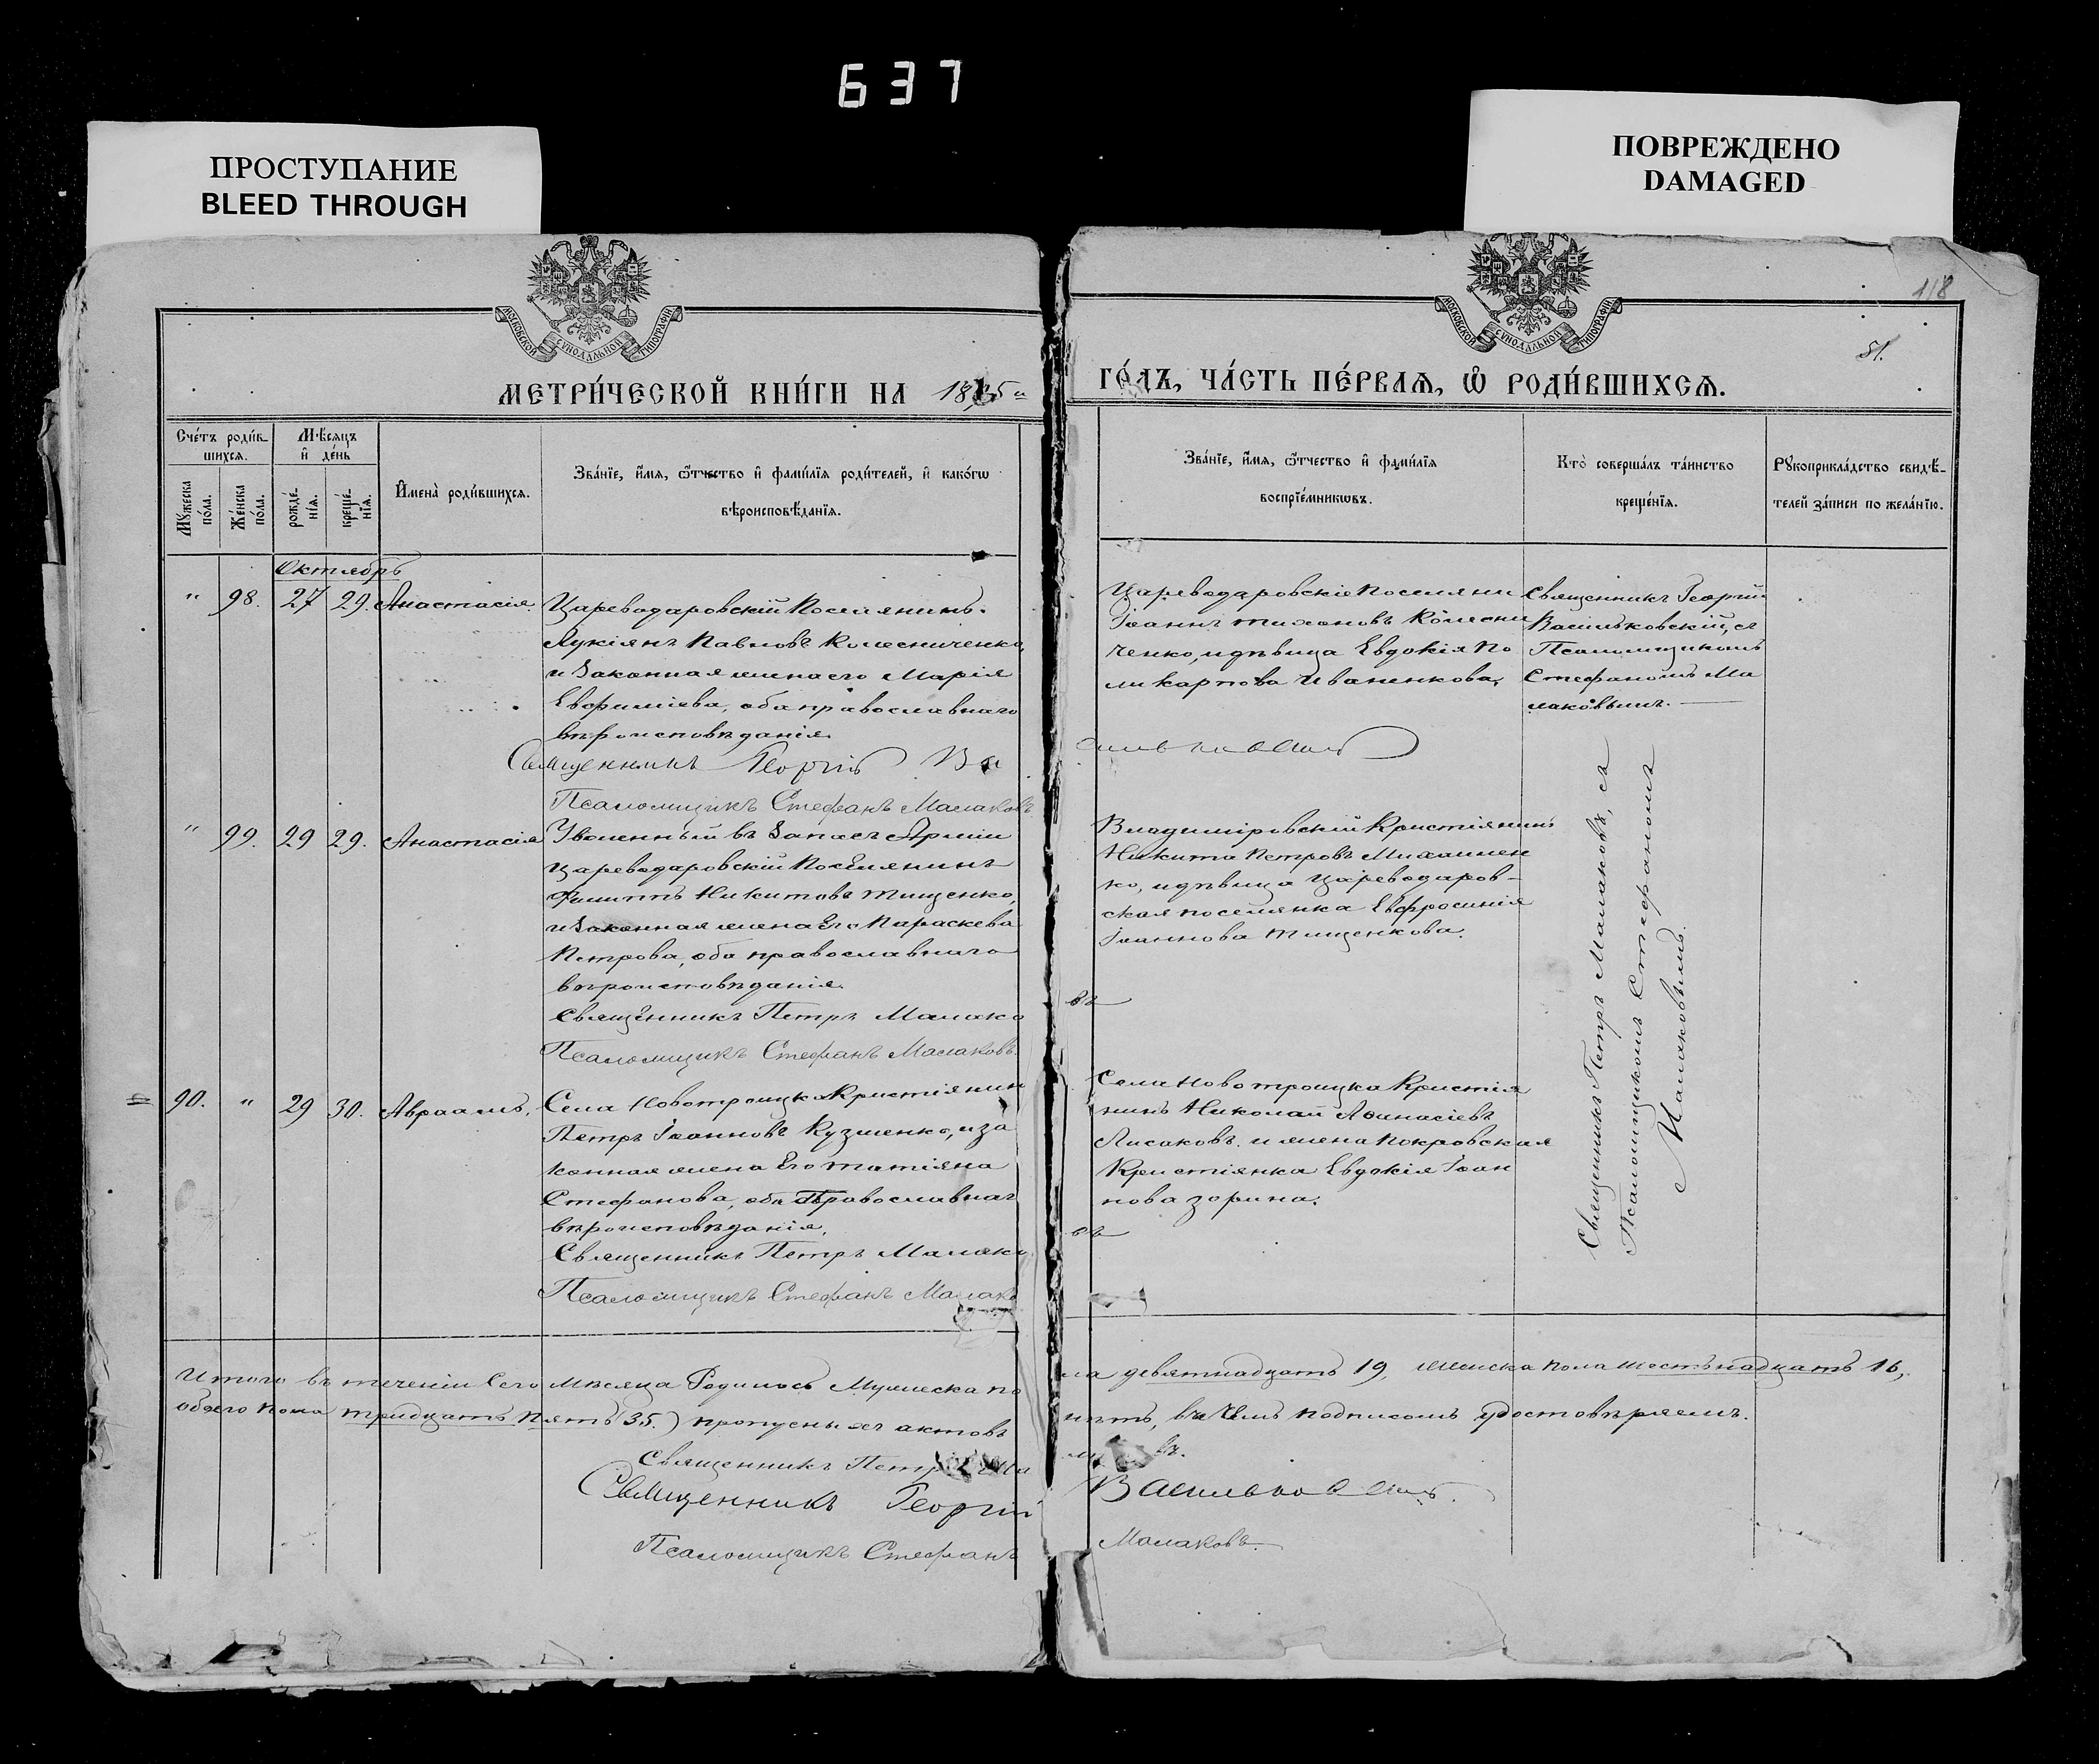 637
ПРОСТУПАНИЕ
BLEED THROUGH
ПОВРЕЖДЕНО
DAMAGED
118
51.
МОСКОВСКОЙ СѴНОДАЛЬНОЙ ТИПОГРАФІИ
МОСКОВСКОЙ СѴНОДАЛЬНОЙ ТИПОГРАФІИ
МЕТРИ́ЧЕСКОЙ КНИ́ГИ НА
ГО́ДЪ, ЧА́СТЬ ПЕ́РВАѦ, Ѡ҆ РОДИ́ВШИХСѦ.
Сче́тъ роди́в-
шихсѧ.
Мѣ́сѧцъ
и҆ де́нь
Мꙋ́жеска
по́ла.
Же́нска
по́ла.
рожде́-
нїѧ.
креще́-
нїѧ.
И҆мена̀ роди́вшихсѧ.
Зва́нїе, и҆́мѧ, ѻ҆́тчество и҆ фами́лїѧ роди́телей, и҆ како́гѡ
вѣроисповѣ́данїѧ.
Зва́нїе, и҆́мѧ, ѻ҆́тчество и҆ фами́лїѧ
воспрїе́мникѡвъ.
Кто̀ соверша́лъ та́инство
креще́нїѧ.
Рꙋкоприкла́дство свидѣ́-
телей за́писи по жела́нїю.
Октябрь
" 98. 27 29. Анастасія
Цареводаровскій Поселянинъ
Лукіянъ Павловъ Колесниченко,
и законная жена его Марія
Евфиміева, оба православнаго
вѣроисповѣданія.
Священникъ Георгій Ва
Псаломщикъ Стефанъ Малаковъ
Цареводаровскіе Поселяни
Іоаннъ Тихоновъ Колесни
ченко, и дѣвица Евдокія По
ликарпова Иваненкова.
сильковскій
Священникъ Георгій
Васильковскій, съ
Псаломщикомъ
Стефаномъ Ма
лаковымъ.
" 99. 29 29. Анастасія
Уволенный въ Запасъ Арміи
Цареводаровскій Поселянинъ
Филиппъ Никитовъ Тищенко,
и законная жена Его Параскева
Петрова, оба православнаго
вѣроисповѣданія.
Священникъ Петръ Малако
Псаломщикъ Стефанъ Малаковъ.
Владимировскій Кристіянинъ
Никита Петровъ Михайлен
ко, и дѣвица Цареводаров-
ская поселянка Евфросинія
Іоаннова Тищенкова.
въ
Священникъ Петръ Малаковъ, съ
Псаломщикомъ Стефаномъ
Малаковымъ.
90. " 29 30. Авраамъ.
Села Новотроицка Кристіянин
Петръ Іоанновъ Кузменко, и за
конная жена Его Татіяна
Стефанова, оба Православнаг
вѣроисповѣданія.
Священникъ Петръ Малако
Псаломщикъ Стефанъ Малако
Села Новотроицка Кристія
нинъ Николай Аѳанасіевъ
Лисаковъ, и жена Покровская
Кристіянка Евдокія Іоан
нова Зорина.
въ
Итого въ теченіи Сего Мѣсяца Родилось Мужеска по
ла девятнадцать 19, женска пола шестьнадцать 16,
обоего пола тридцать пять 35.) пропусныхъ актовъ
нѣтъ, въ чемъ подписомъ удостовѣряемъ.
Священникъ Петръ Ма
Священникъ Георгій
Васильковскій.
Псаломщикъ Стефанъ
Малаковъ.